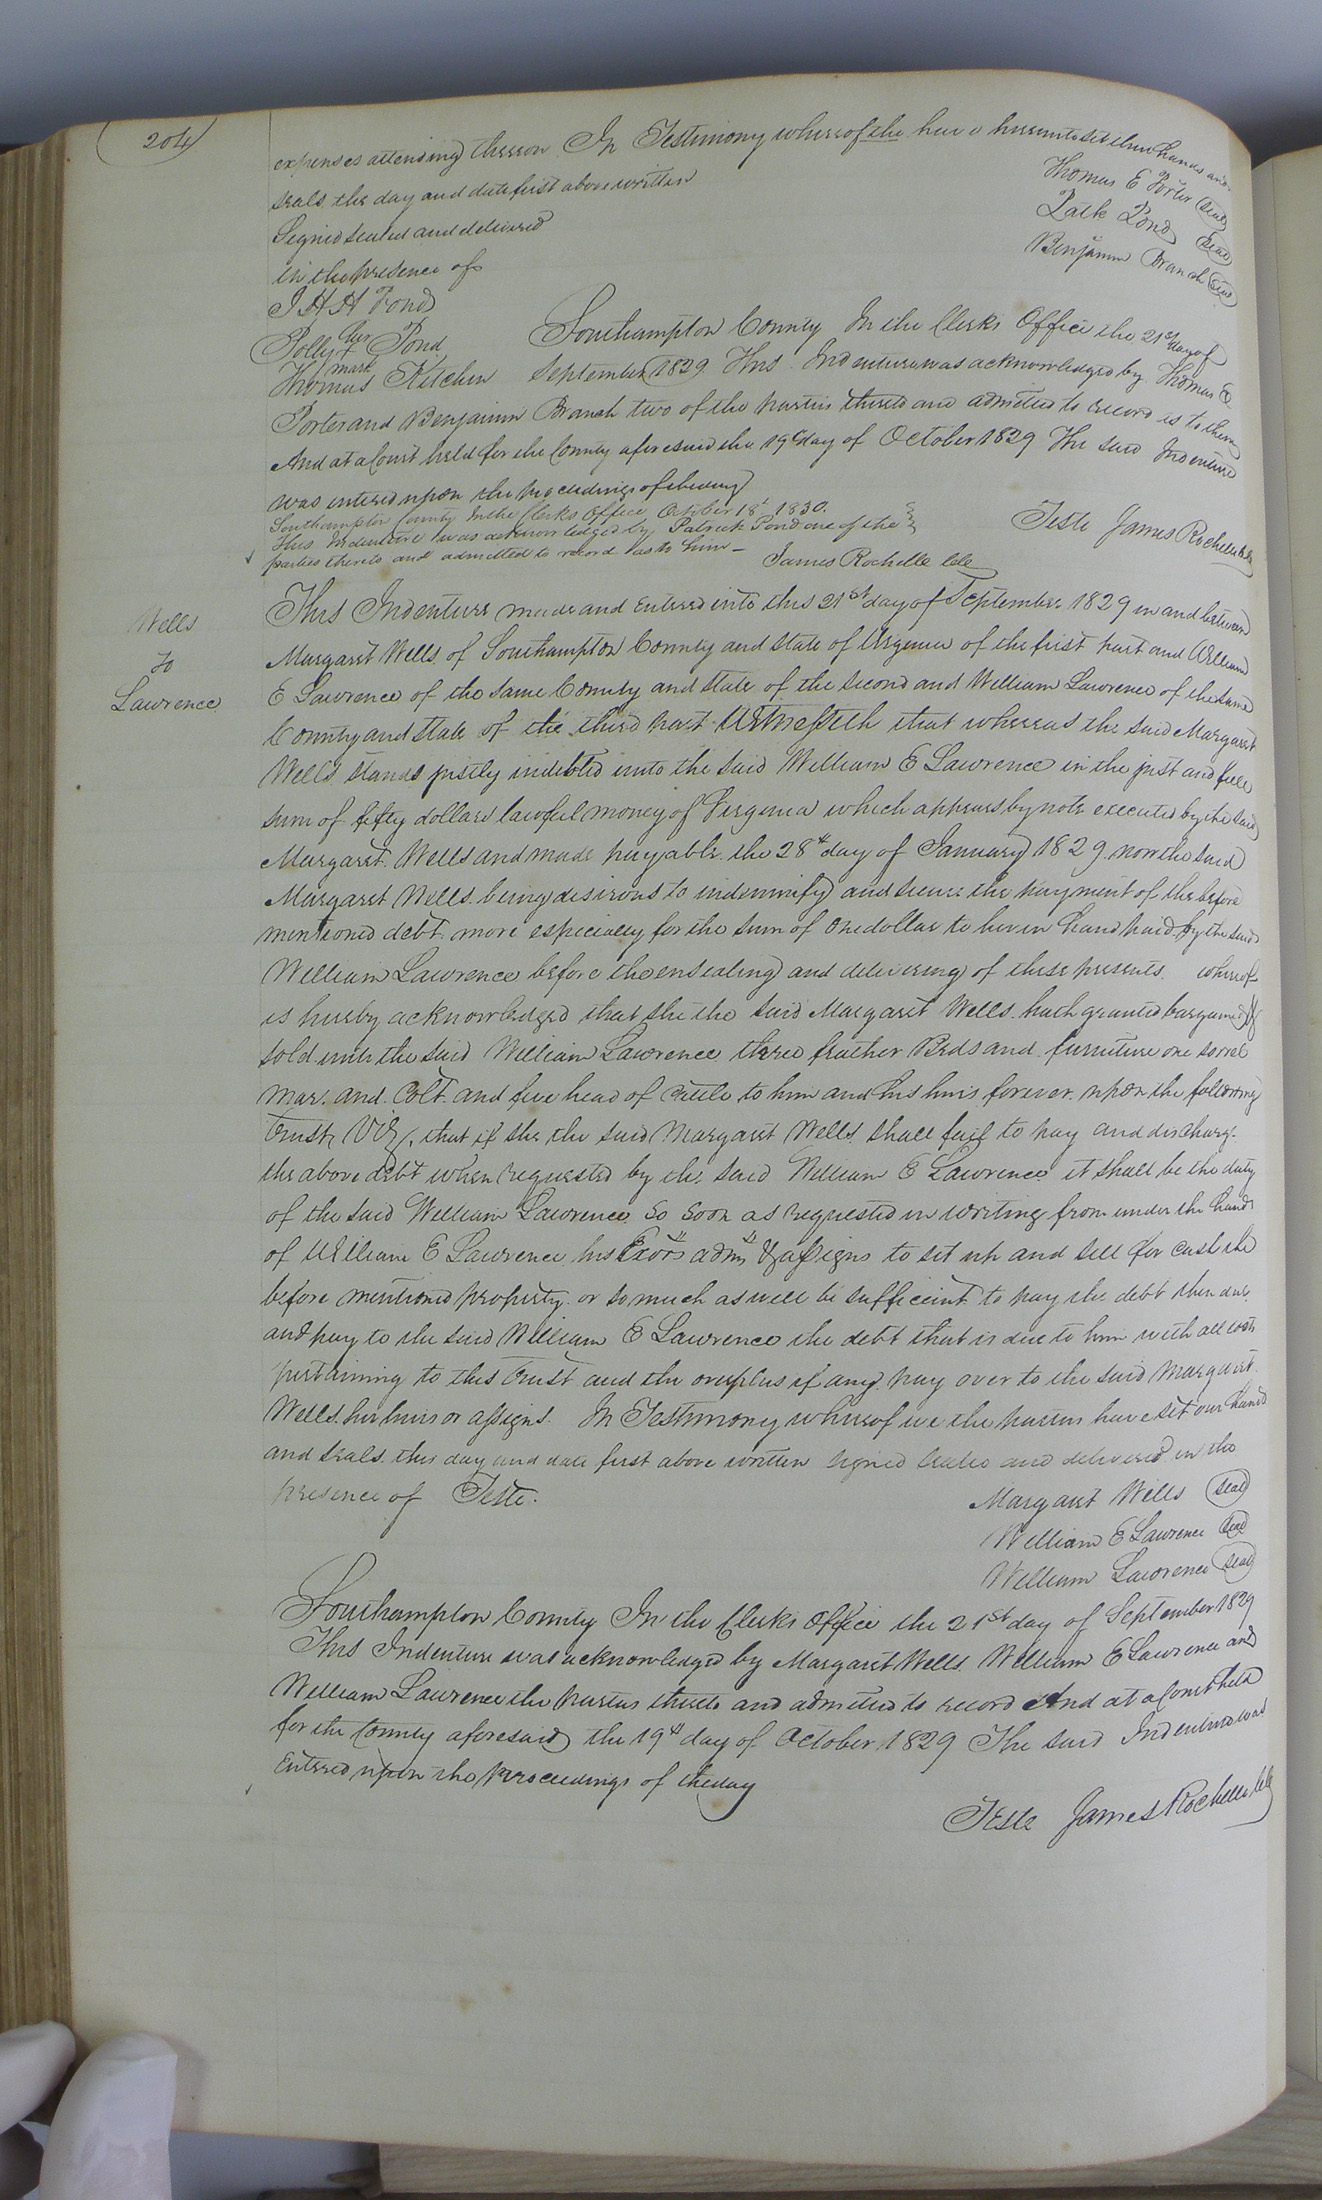 204
expenses attending thereon In Testimony whereof the have hereunto set their hands and
seals the day and date first above written
Thomas E Porter Seal
Signed sealed and delivered
Patk Pond Seal
in the presence of
Benjamin Branch Seal
J H H Pond
Polly her + mark Pond
Thomas Kitchen
Southampton County In the Clerks Office the 21st day of
September 1829 This Indenture was acknowledged by Thomas E
Porter and Benjamin Branch two of the parties thereto and admitted to record as to them
And at a Court held for the County aforesaid the 19th day of October 1829 The said Indenture
was entered upon the proceedings of the day
Teste James Rochelle clk
Southampton County In the Clerks Office October 18th 1830.
This Indenture was acknowledged by Patrick Pond one of the
parties thereto and admitted to record as to him –
James Rochelle clk
Wells
To
Lawrence
This Indenture made and entered into this 21st day of September 1829 in and between
Margaret Wells of Southampton County and State of Virginia of the first part and William
E Lawrence of the same County and State of the second and William Lawrence of the same
County and State of the third part Witnesseth that whereas the said Margaret
Wells stands justly indebted unto the said William E Lawrence in the just and full
sum of fifty dollars lawful money of Virginia which appears by note executed by the said
Margaret Wells and made payable the 28th day of January 1829 now the said
Margaret Wells being desirous to indemnify and secure the payment of the before
mentioned debt more especially for the sum of one dollar to her in hand paid by the said
William Lawrence before the ensealing and delivering of these presents whereof
is hereby acknowledged that she the said Margaret Wells hath granted bargained &
sold unto the said William Lawrence three feather Beds and furniture one sorrel
mar. and Colt and five head of cattle to him and his heirs forever upon the following
Trust, Viz, that if she the said Margaret Wells shall fail to pay and discharge
the above debt when requested by the said William E Lawrence it shall be the duty
of the said William Lawrence so soon as requested in writing from under the hand
of William E Lawrence his Exors admrs & assigns to set up and sell for cash the
before mentioned property or so much as will be sufficient to pay the debt then due
and pay to the said William E Lawrence the debt that is due to him with all costs
pertaining to this Trust and the overplus if any pay over to the said Margaret
Wells her heirs or assigns. In Testimony whereof we the parties have set our hands
and seals this day and date first above written signed sealed and delivered in the
presence of Teste.
Margaret Wells Seal
William E Lawrence Seal
William Lawrence Seal
Southampton County In the Clerks Office the 21st day of September 1829
This Indenture was acknowledged by Margaret Wells William E Lawrence and
William Lawrence the parties thereto and admitted to record And at a Court held
for the County aforesaid the 19th day of October 1829 The said Indenture was
Entered upon the Proceedings of the day
Teste James Rochelle clk